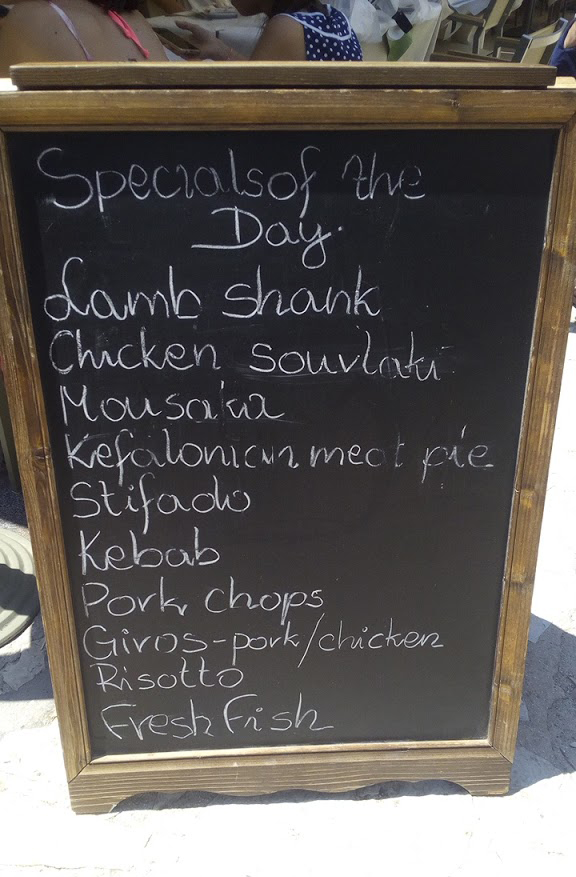 Specials of the
Day.
Lamb shank
Chicken souvlaki
Mousaka
Kefalonian meat pie
Stifado
Kebab
Pork chops
Giros-pork/chicken
Risotto
Fresh Fish